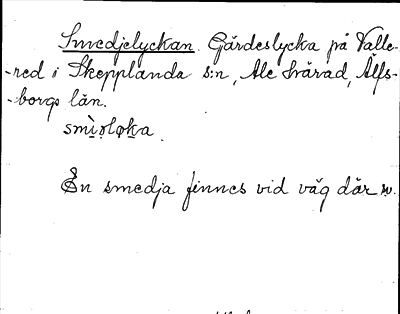 Smedjelyckan. Gärdeslycka på Välle-
-red i Skepplanda s:n, Ale härad, Älfs-
-borgs län.
smìəløka.
En smedja finnes vid väg där